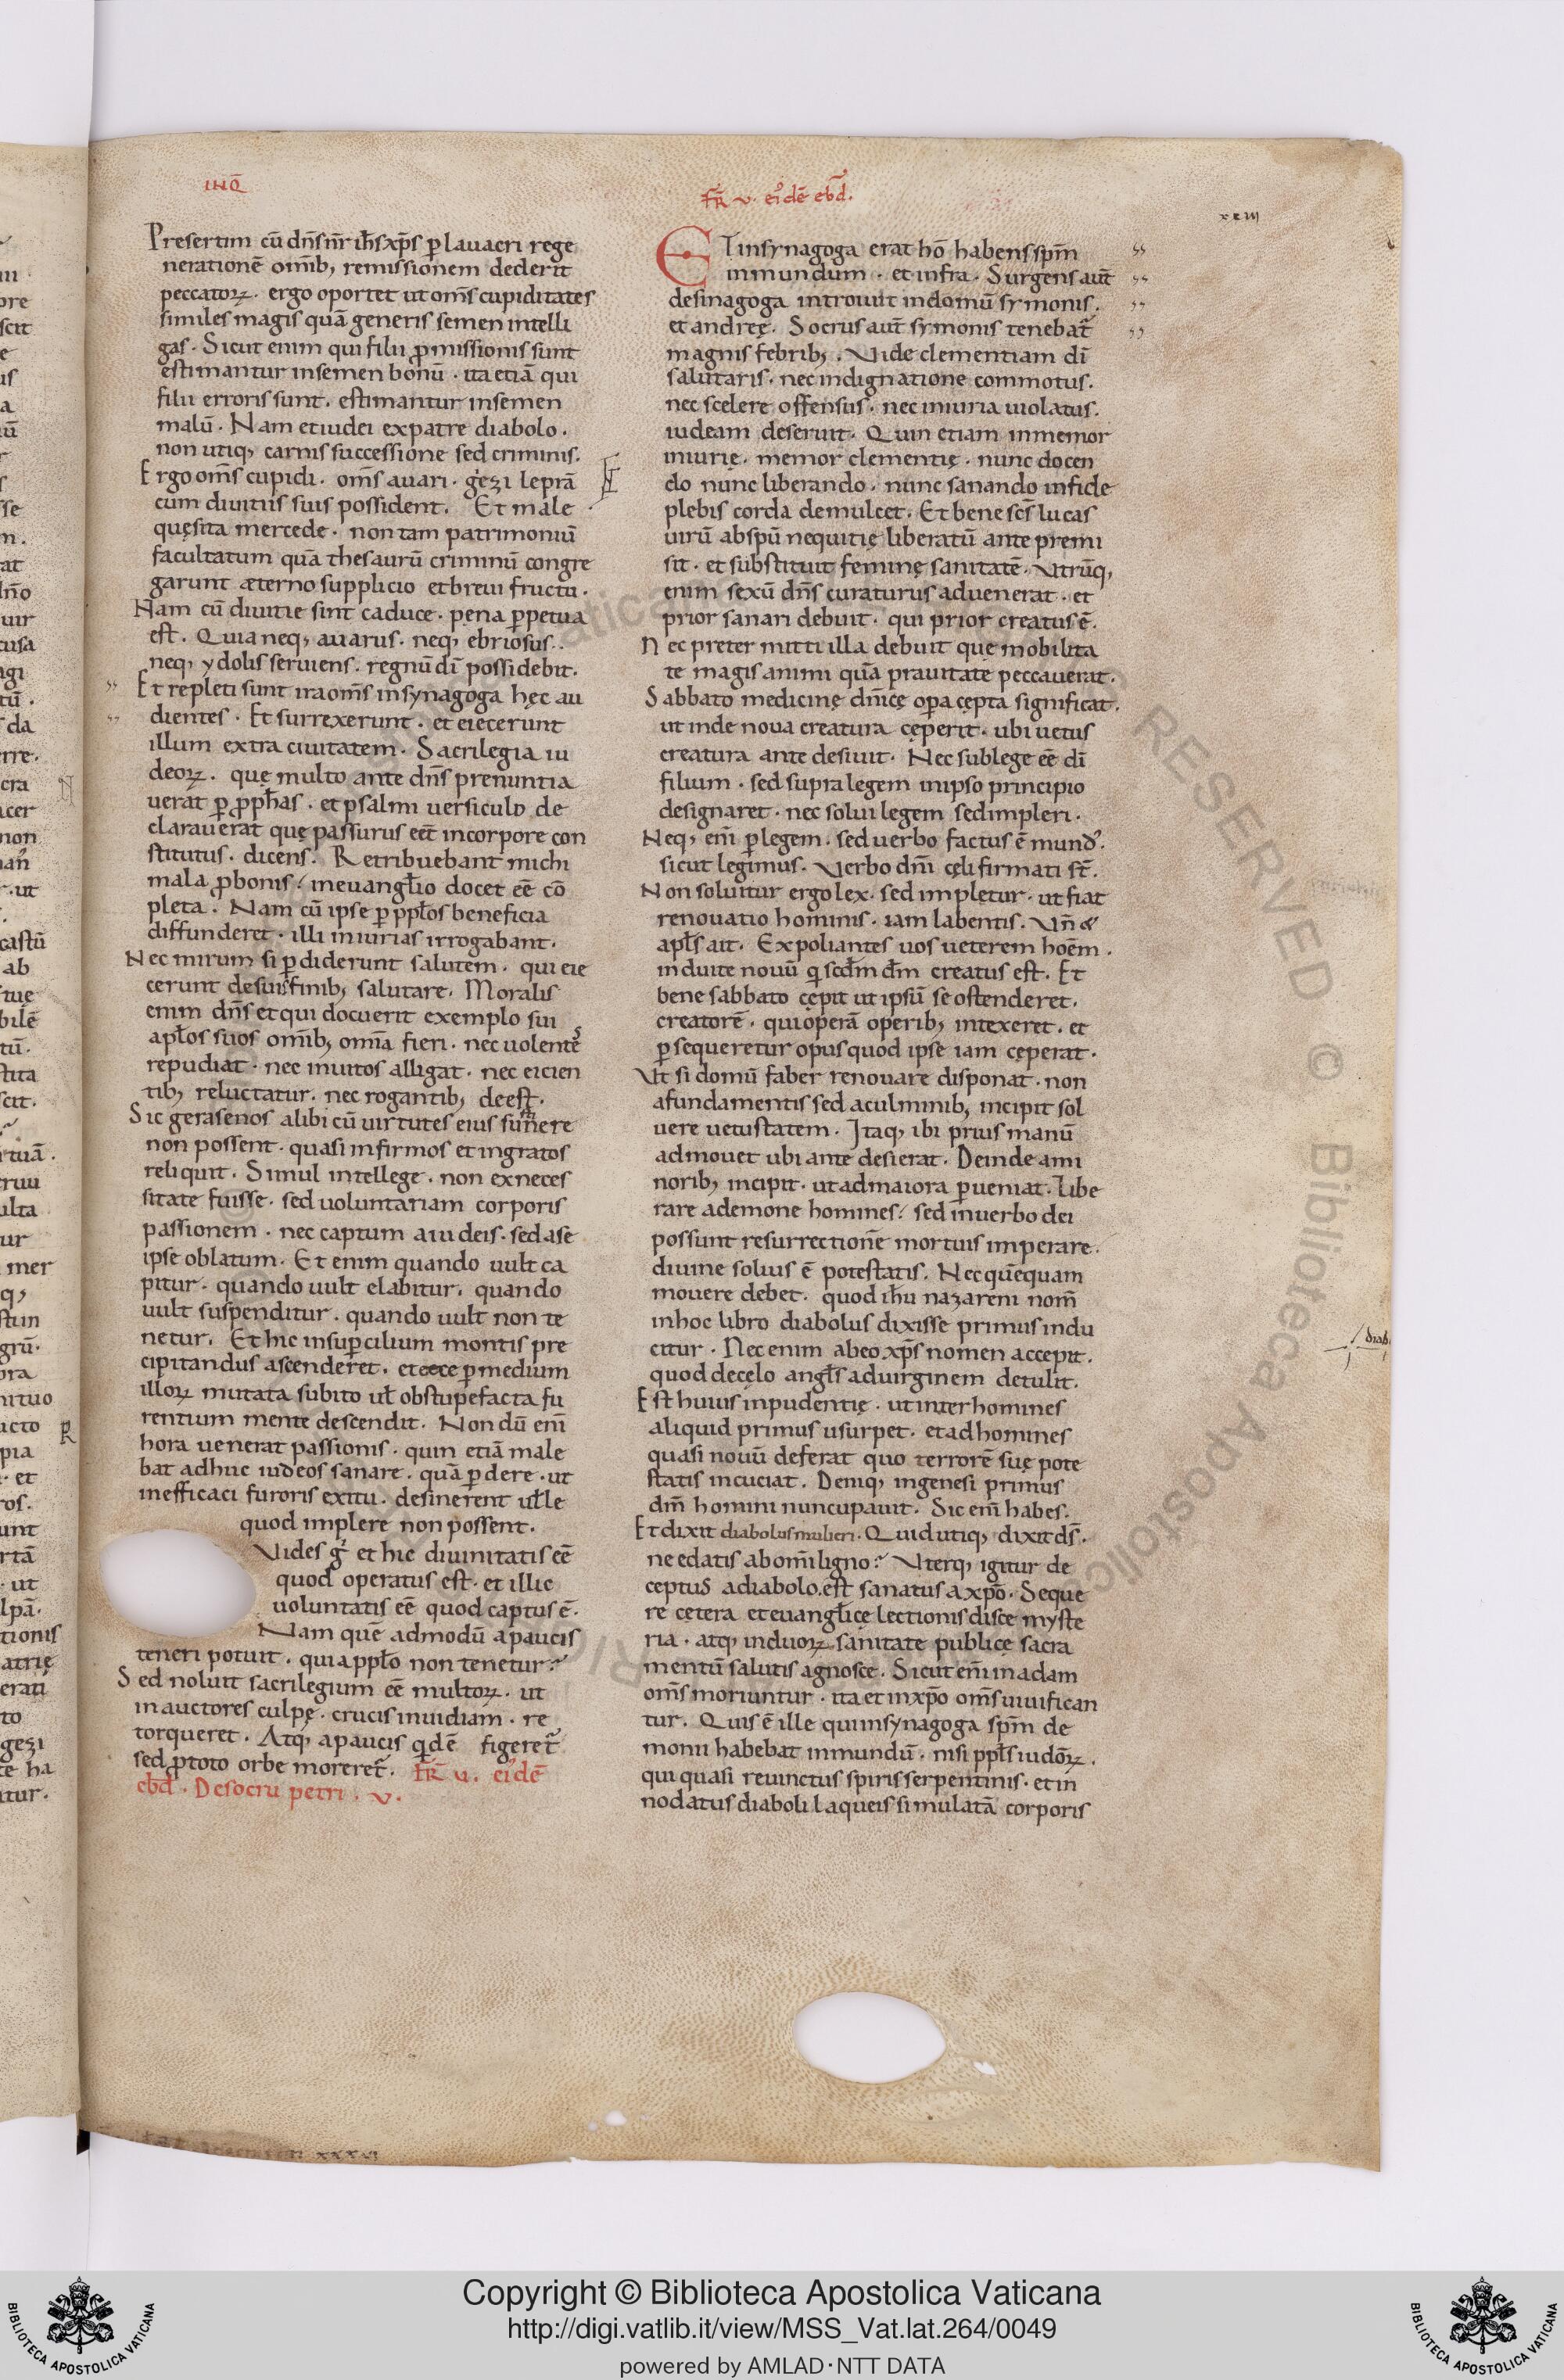 INQ̄
Presertim cū dn̄s nr̄ ih̄s xp̄s p̱ lavacri rege
nerationē om̄ib; remissionem dederit
peccatoꝝ. ergo oportet ut om̄s cupiditates
similes magis quā generis semen intelli
gas. Sicut enim qui filii ꝓmissionis sunt
estimantur insemen bonū. ita etiā qui
filii erroris sunt. estimantur insemen
malū. Nam et iudei expatre diabolo.
non utiq; carnis successione sed criminis.
Ergo om̄s cupidi. om̄s avari. giezi leprā
cum divitiis suis possident. Et male
quęsita mercede. non tam patrimoniū
facultatum quā thesaurū criminū congre
garunt æterno supplicio et brevi fructu.
Nam cū divitie sint caduce. pena ꝑpetua
est. Quia neq; avarus. neq; ebriosus.
neq; ydolis serviens. regnū dī possidebit.
Et repleti sunt ira om̄s in synagoga hęc au
dientes. Et surrexerunt. et eiecerunt
illum extra civitatem. Sacrilegia iu
deoꝝ. quę multo ante dn̄s prenuntia
verat ꝑ ꝓph̄as. et psalmi versiculo de
claraverat quę passurus eēt incorpore con
stitutus. dicens. Retribuebant michi
mala ꝓbonis. inevangl̄io docet eē cō
pleta. Nam cū ipse ꝑ ppl̄os beneficia
diffunderet. illi iniurias irrogabant.
Nec mirum si ꝑdiderunt salutem. qui eie
cerunt desuis finib; salutare. Moralis
enim dn̄s et qui docuerit exemplo sui
apl̄os suos om̄ib; om̄ia fieri. nec volentes
repudiat. nec invitos alligat. nec eicien
tib; reluctatur. nec rogantib; deest.
Sic gerasenos alibi cū virtutes eius sustinere
non possent. quasi infirmos et ingratos
reliquit. Simul intellege. non exneces
sitate fuisse. sed voluntariam corporis
passionem. nec captum a iudeis. sed a se
ipse oblatum. Et enim quando vult ca
pitur. quando vult elabitur. quando
vult suspenditur. quando vult non te
netur. Et hic insuꝑcilium montis pre
cipitandus ascenderet. et ecce ꝑ medium
illoꝝ mutata subito ul̄ obstupefacta fu
rentium mente descendit. Non dū enī
hora venerat passionis. quin etiā male
bat adhuc iudeos sanare. quā ꝑdere. ut
inefficaci furoris exitu. desinerent velle
quod implere non possent.
Vides g̊ et hic divinitatis eē
quod operatus est. et illic
voluntatis eē quod captus ē.
Nam que admodū a paucis
teneri potuit. qui a ppl̄o non tenetur?
Sed noluit sacrilegium eē multoꝝ. ut
in auctores culpę. crucis invidiam. re
torqueret. Atq; a paucis qͥdē figeret̄
sed ꝓtoto orbe moreret̄. FR̄ v. eiͥdē
ebd̄. De socru petri. v.
FR̄ v. eiͥdē ebd̄.
xxiii
Et in synagoga erat hō habens spm̄
inmundum. et infra. Surgens aut̄
de sinagoga introivit indomū symonis.
et andreę. Socrus aut̄ symonis tenebat̄
magnis febrib;. Vide clementiam dī
salutaris. nec indignatione commotus.
nec scelere offensus. nec iniuria violatus.
iudeam deseruit. Quin etiam inmemor
iniurię. memor clementię. nunc docen
do nunc liberando. nunc sanando infide
plebis corda demulcet. Et bene sc̄s lucas
virū abspū nequitię liberatū ante premi
sit. et substituit feminę sanitatē. Utrūq;
enim sexū dn̄s curaturus advenerat. et
prior sanari debuit. qui prior creatus ē.
Nec preter mitti illa debuit quę mobilita
te magis animi quā pravitate peccaverat.
Sabbato medicinę dn̄icę oꝑa cępta significat.
ut inde nova creatura cęperit. ubi vetus
creatura ante desivit. Nec sub lege eē dī
filium. sed supra legem inipso principio
designaret. nec solvi legem sed impleri.
Neq; enī ꝑ legem. sed verbo factus ē mund⁹.
sicut legimus. Verbo dn̄i cęli firmati st̄.
Non solvitur ergo lex. sed impletur. ut fiat
renovatio hominis. iam labentis. Un̄ &
apl̄s ait. Expoliantes vos veterem hoēm.
induite novū qͥ scd̄m dm̄ creatus est. Et
bene sabbato cępit ut ipsū se ostenderet.
creatorē. qui operā operib; intexeret. et
ꝑsequeretur opus quod ipse iam cęperat.
Ut si domū faber renovare disponat. non
afundamentis sed aculminib; incipit sol
vere vetustatem. Itaq; ibi prius manū
admovet ubi ante desierat. Deinde ami
norib; incipit. ut admaiora ꝑveniat. Libe
rare ademone homines. sed inverbo dei
possunt resurrectionē mortuis imperare.
divine solius ē potestatis. Nec quēquam
movere debet. quod ih̄u nazareni nom̄
inhoc libro diabolus dixisse primus indu
citur. Nec enim abeo xp̄s nomen accepit.
quod decęlo angl̄s advirginem detulit.
Est huius inpudentię. ut inter homines
aliquid primus usurpet. et adhomines
quasi novū deferat quo terrorē suę pote
statis incuciat. Deniq; ingenesi primus
dm̄ homini nuncupavit. Sic enī habes.
Et dixit diabolus mulieri. Quid utiq; dixit ds̄.
ne edatis ab om̄i ligno? Uterq; igitur de
ceptus adiabolo. est sanatus a xpō. Seque
re cetera et evangl̄icę lectionis disce myste
ria. atq; induoꝝ sanitate publicę sacra
mentū salutis agnosce. Sicut enī inadam
om̄s moriuntur. ita et inxpō om̄s vivifican
tur. Quis ē ille qui insynagoga spm̄ de
monii habebat inmundū. nisi ppl̄s iudōꝝ.
qui quasi revinctus spiris serpentinis. et in
nodatus diaboli laqueis simulatā corporis
diab
Copyright © Biblioteca Apostolica Vaticana
http://digi.vatlib.it/view/MSS_Vat.lat.264/0049
powered by AMLAD·NTT DATA
BIBLIOTECA APOSTOLICA VATICANA
BIBLIOTECA APOSTOLICA VATICANA